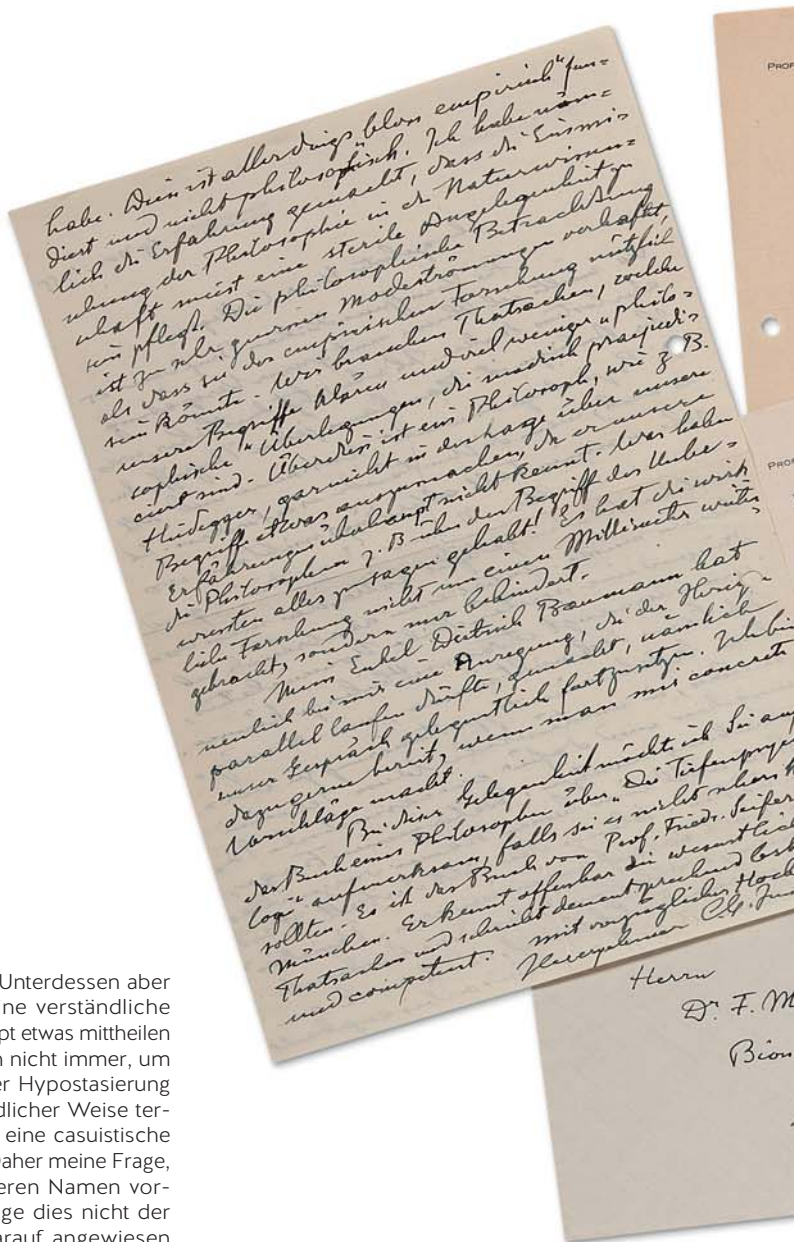 habe. Dies ist allerdings bloss empirisch" fun=
diert und nicht philosophisch. Ich habe näm=
lich die Erfahrung gemacht, dass die Einmi=
schung der Philosophie in die Naturwissen=
schaft meist eine sterile Angelegenheit zu
sein pflegt. Die philosophische Betrachtung
ist zu sehr gewissen Modeströmungen verhaftet,
als dass sie der empirischen Forschung nützlich
sein könnte. Wir brauchen Thatsachen, welche
unsere Begriffe klären und viel weniger „philo=
sophische" Überlegungen, die modisch praejudi=
ciert sind. Überdies ist ein Philosoph, wie z. B.
Heidegger, gar nicht in der Lage über unsere
Begriffe etwas auszumachen, da er unsere
Erfahrungen überhaupt nicht kennt. Was haben
die Philosophen z. B. über den Begriff des Unbe=
wussten alles zu sagen gehabt! Es hat die wirk
liche Forschung nicht um einen Millimeter weiter
gebracht, sondern nur behindert.
Mein Enkel Dietrich Baumann hat
neulich bei mir eine Anregung, die der Ihrig
parallel laufen dürfte, gemacht, nämlich
unser Gespräch gelegentlich fortzusetzen. Ich bin
dazu gerne bereit, wenn man mir concrete
Vorschläge macht.
Bei dieser Gelegenheit möchte ich Sie auf
das Buch eines Philosophen über „Die Tiefenpsycho
logie" aufmerksam, falls Sie es nicht schon k
sollten. Es ist das Buch von Prof. Friedr. Seifert
München. Er kennt offenbar die wesentlich
Thatsachen und schreibt dementsprechend
und competent.
mit vorzüglicher Hoch
Ihr ergebener C.G. Jung
PROF
PROF
Herrn
Dr. F. M
Unterdessen aber
ne verständliche
pt etwas mittheilen
n nicht immer, um
er Hypostasierung
dlicher Weise ter-
eine casuistische
Daher meine Frage,
eren Namen vor-
ge dies nicht der
arauf angewiesen